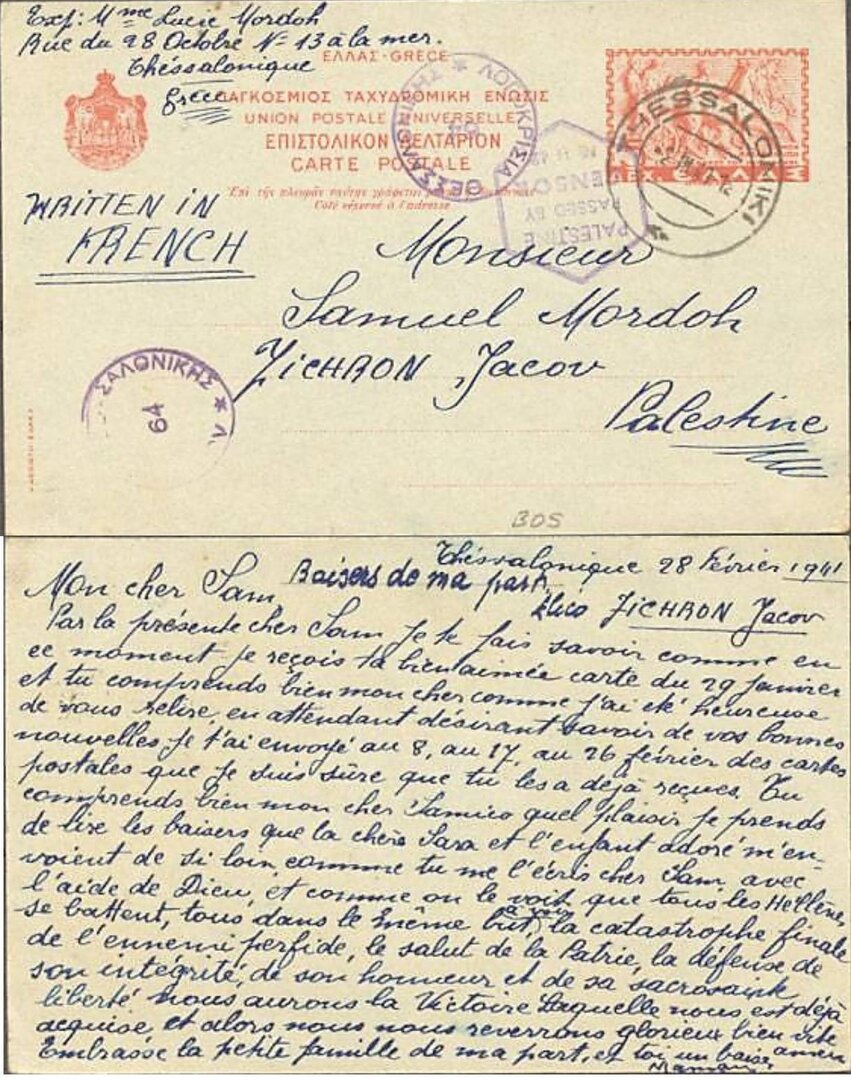 Exp: Mme Lucie Mordoh
Rue du 28 Octobre N- 13 à la mer.
Théssalonique
Grèce
ΕΛΛΑΣ-GRÈCE
ΠΑΓΚΟΣΜΙΟΣ ΤΑΧΥΔΡΟΜΙΚΗ ΕΝΩΣΙΣ
UNION POSTALE UNIVERSELLE
ΕΠΙΣΤΟΛΙΚΟΝ ΔΕΛΤΑΡΙΟΝ
CARTE POSTALE
Ἐπὶ τῆς πλευρᾶς ταύτης γράφεται
Côté réservé à l'adresse
ΛΟΓΟΚΡΙΣΙΑ ΘΕΣΣΑΛ
PALESTINE
PASSED BY
CENSOR
THESSALONIKI
WRITTEN iN
FRENCH
Monsieur
Samuel Mordoh
ZICHRON Jacov
Palestine
ΣΑΛΟΝΙΚΗΣ * Λ
64
BOS
Théssalonique 28 Février 1941
Mon cher Sam Baisers de ma part
ZICHRON Jacov
Par la présente cher Sam je te fais savoir comme en
ce moment je reçois ta bien aimée carte du 29 janvier
et tu comprends bien mon cher comme j'ai été heureuse
de vous relire, en attendant désirant savoir de vos bonnes
nouvelles je t'ai envoyé au 8, au 17, au 26 février des cartes
postales que je suis sûre que tu les a déjà reçues. Tu
comprends bien mon cher Samico quel plaisir je prends
de lire les baisers que la chère Sara et l'enfant adoré m'en-
voient de si loin, comme tu me l'écris cher Sam, avec
l'aide de Dieu, et comme on le voit que tous les Hellènes
se battent, tous dans le même but, la catastrophe finale
de l'ennemi perfide, le salut de la Patrie, la défense de
son intégrité, de son honneur et de sa sacrosainte
liberté nous aurons la Victoire laquelle nous est déjà
acquise et alors nous nous reverrons glorieux bien vite
Embrasse la petite famille de ma part, et toi un baiser
Maman